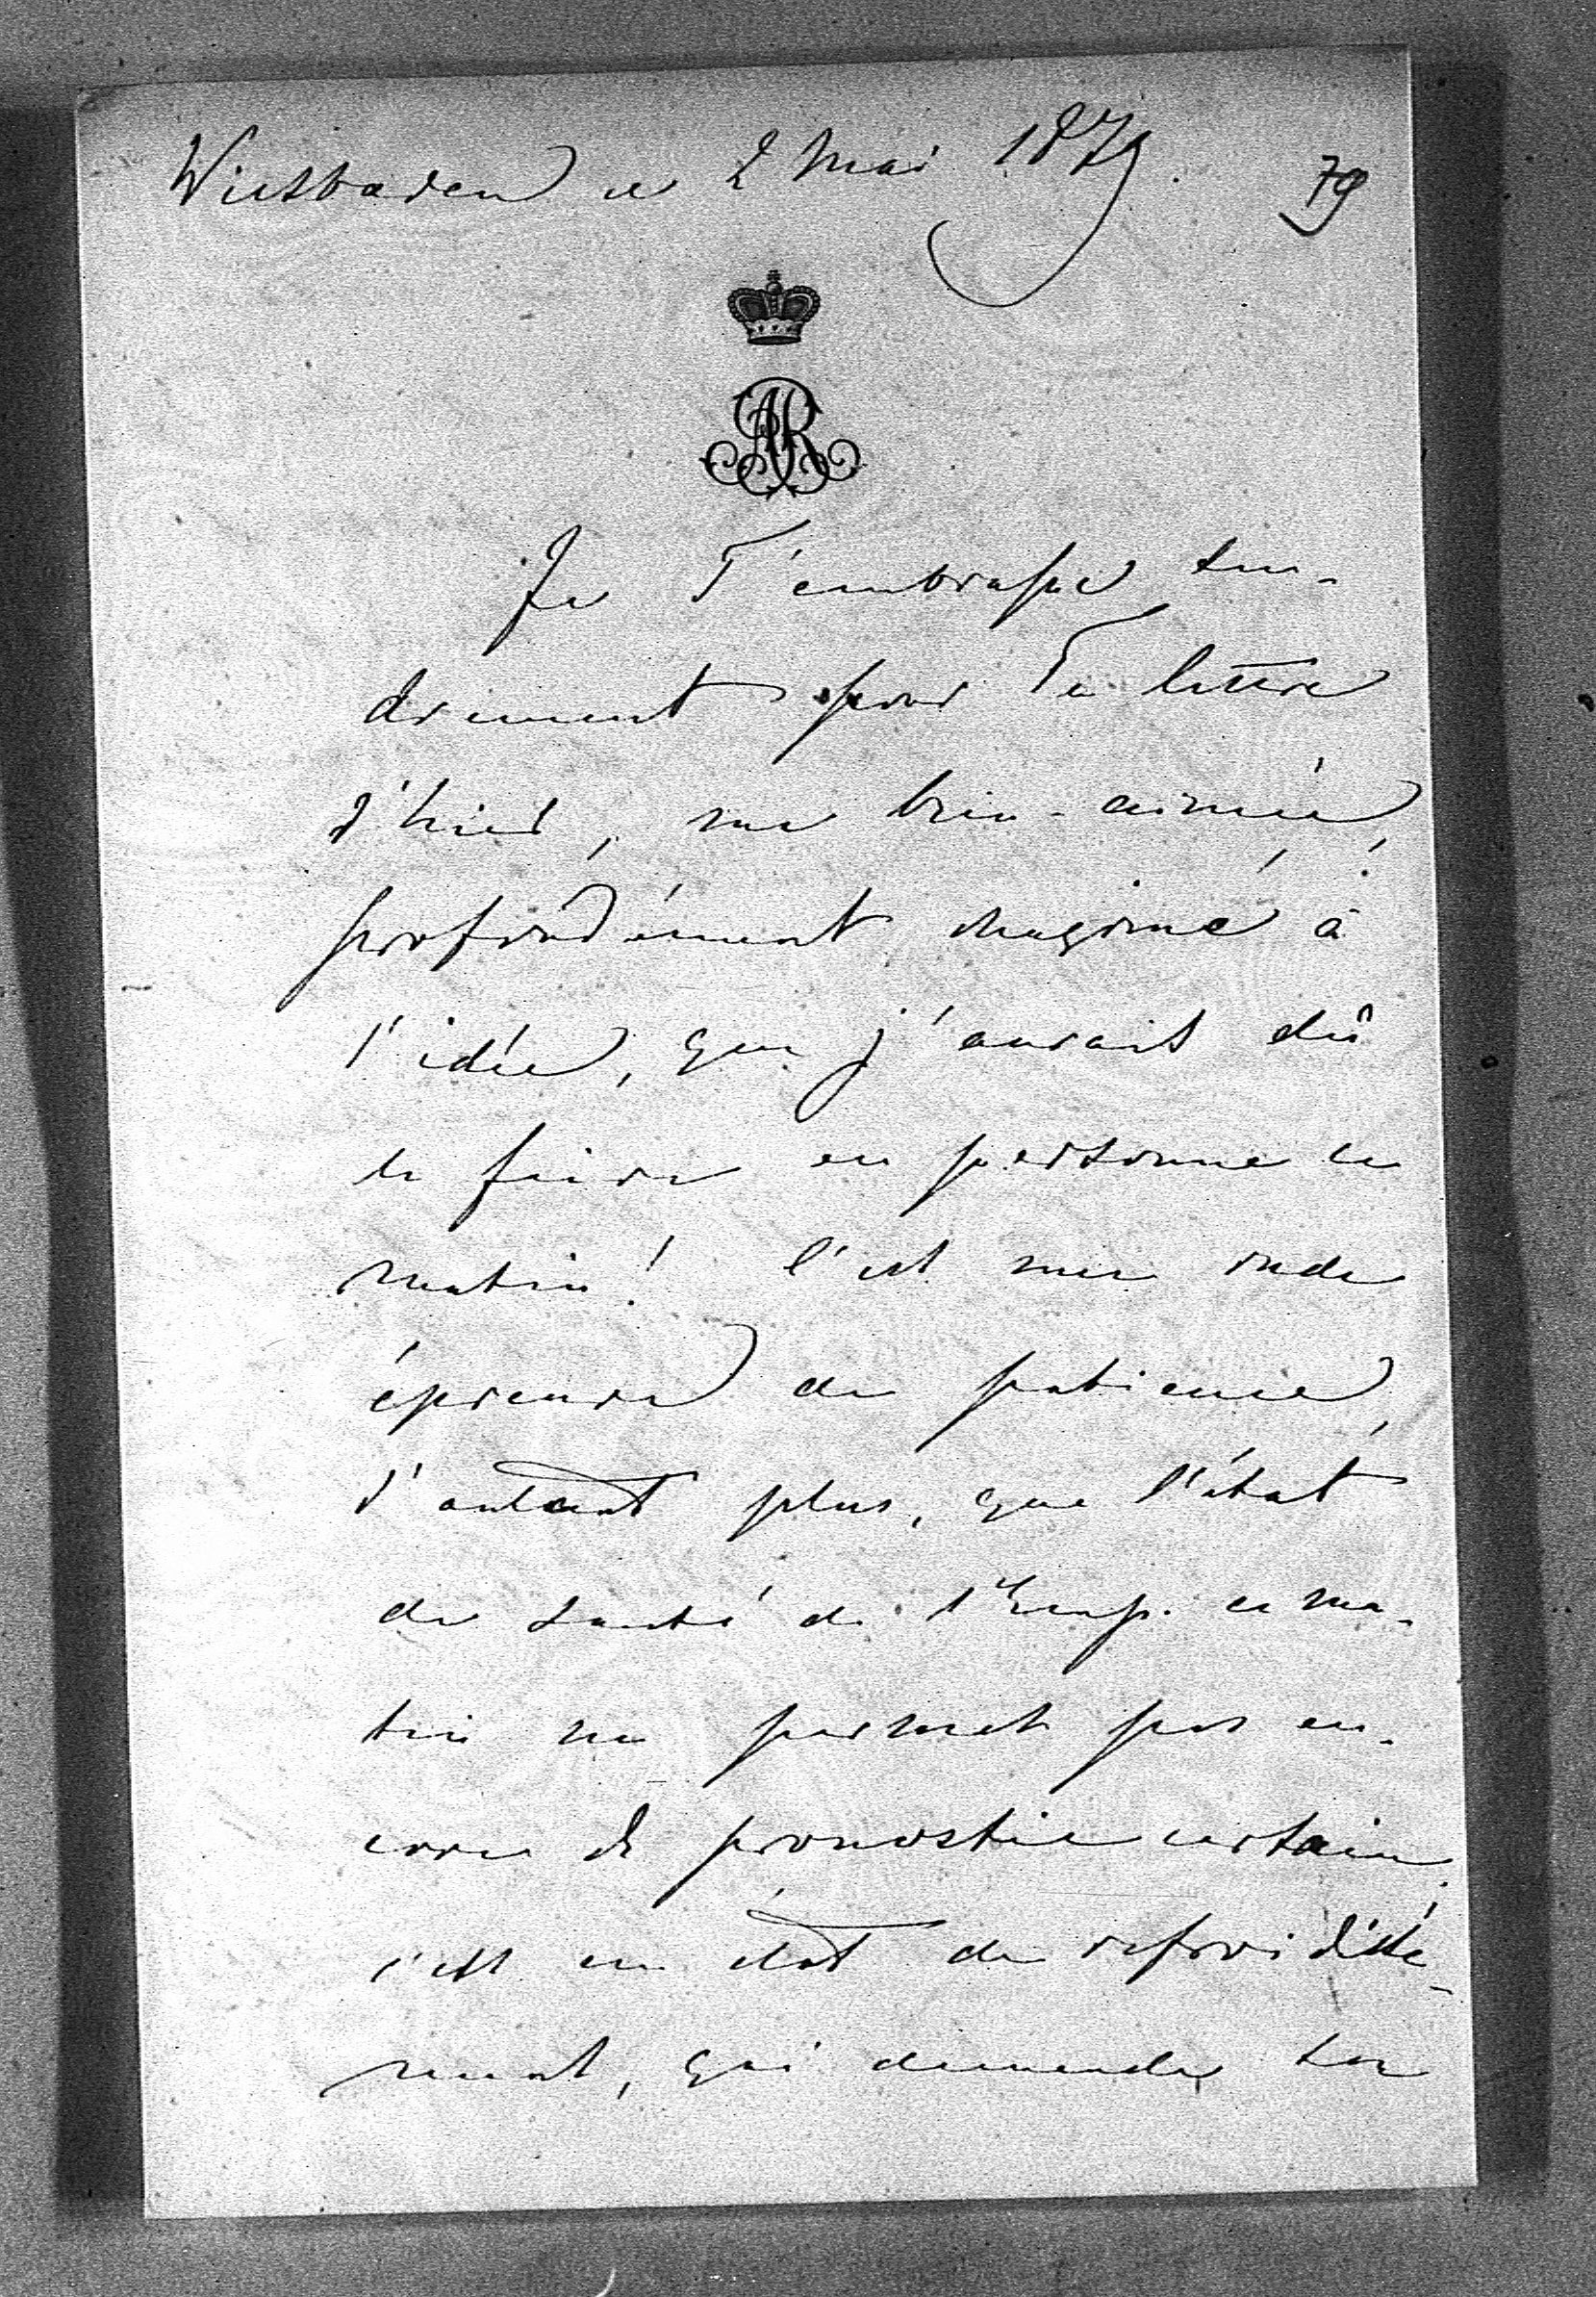 Wiesbaden ce 2 Mai 1879.
79
AR
Je T'embrasse ten-
drement pour Ta lettre
d'hier, ma bien-aimée,
profondément chagriné à
l'idée, que j'aurais dû
le faire en personne ce
matin! C'est une rude
épreuve de patience,
d'autant plus, que l'état
de santé de l'Emp. ce ma-
tin ne permet pas en-
core de pronostic certain;
c'est un état de refroidisse-
ment, qui demande